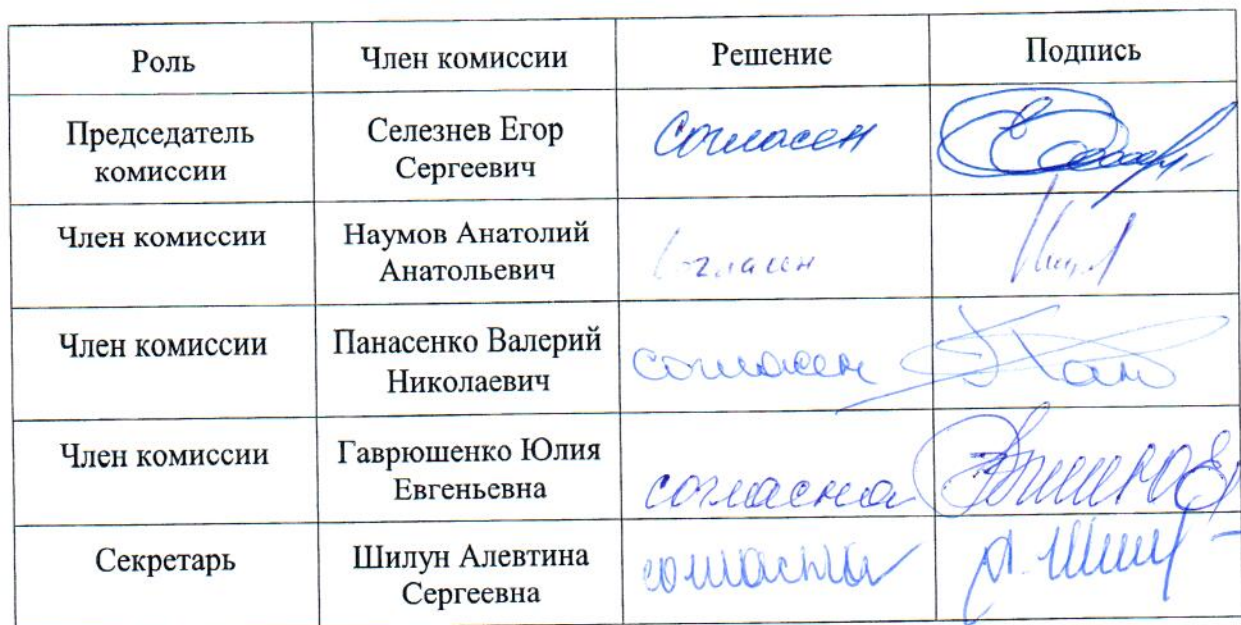 Роль Член комиссии Решение Подпись
Председатель комиссии Селезнев Егор Сергеевич Согласен
Член комиссии Наумов Анатолий Анатольевич Согласен
Член комиссии Панасенко Валерий Николаевич согласен
Член комиссии Гаврюшенко Юлия Евгеньевна согласна
Секретарь Шилун Алевтина Сергеевна согласна